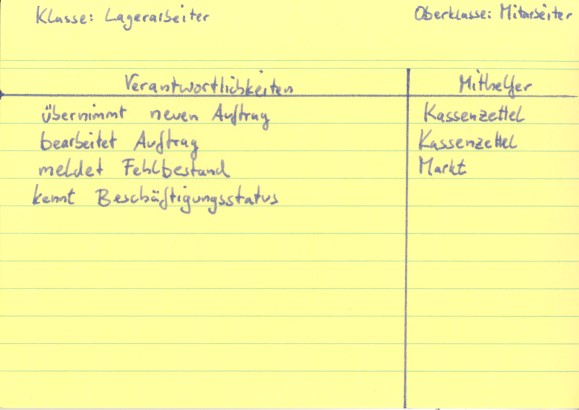 Klasse: Lagerarbeiter Oberklasse: Mitarbeiter
Verantwortlichkeiten Mithelfer
übernimmt neuen Auftrag Kassenzettel
bearbeitet Auftrag Kassenzettel
meldet Fehlbestand Markt
kennt Beschäftigungsstatus